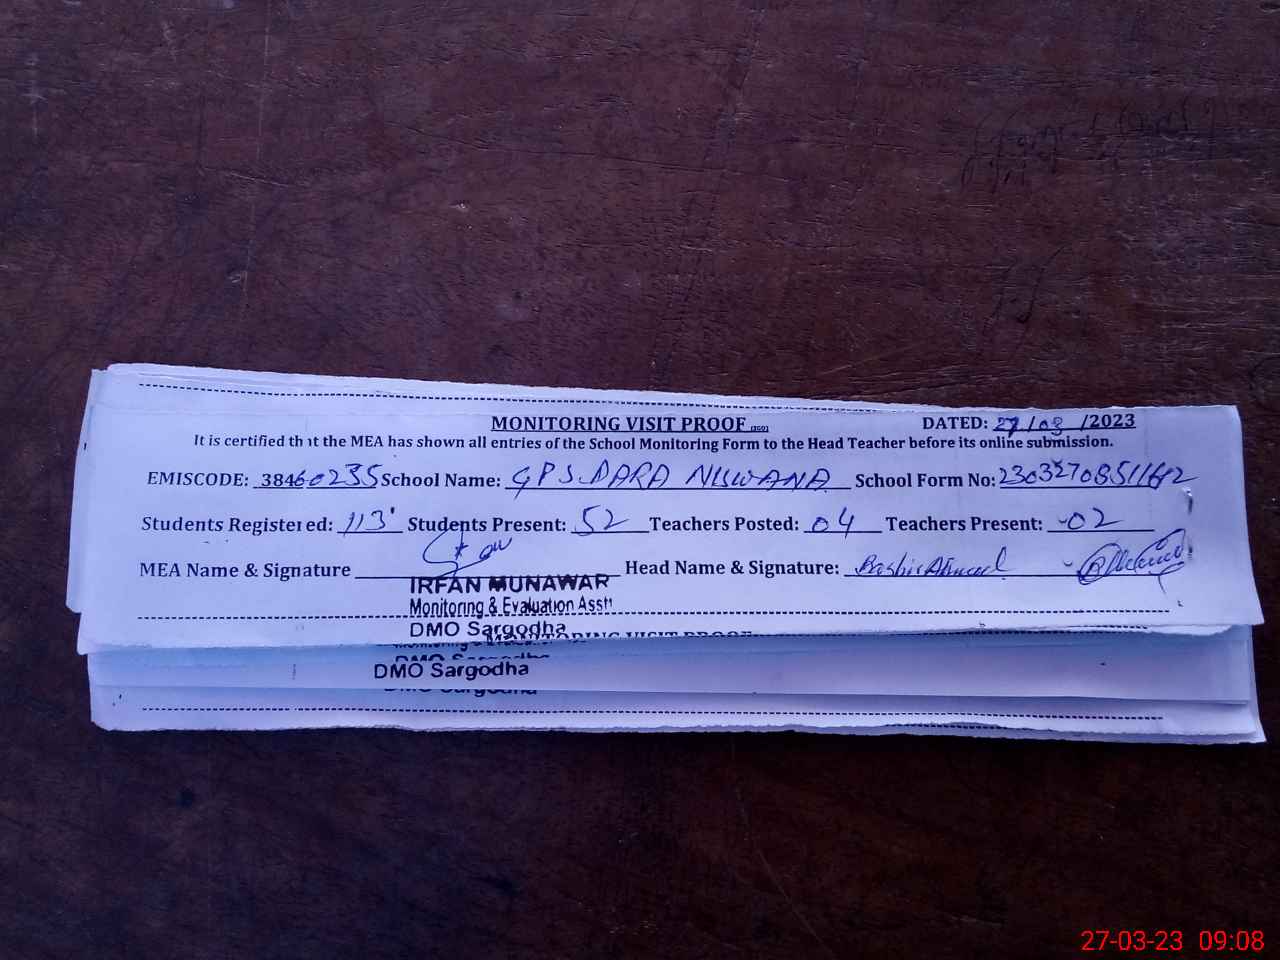 MONITORING VISIT PROOF DATED: 27/03/2023
It is certified that the MEA has shown all entries of the School Monitoring Form to the Head Teacher before its online submission.
EMISCODE: 38460235 School Name: GPS DARA NUWANA School Form No:
Students Registered: 113 Students Present: 52 Teachers Posted: 04 Teachers Present: 02
MEA Name & Signature Head Name & Signature: Bashir Ahmad
IRFAN MUNAWAR
Monitoring & Evaluation Asstt
DMO Sargodha
MONITORING VISIT PROOF
DMO Sargodha
DMO Sargodha
DMO Sargodha
27-03-23 09:08